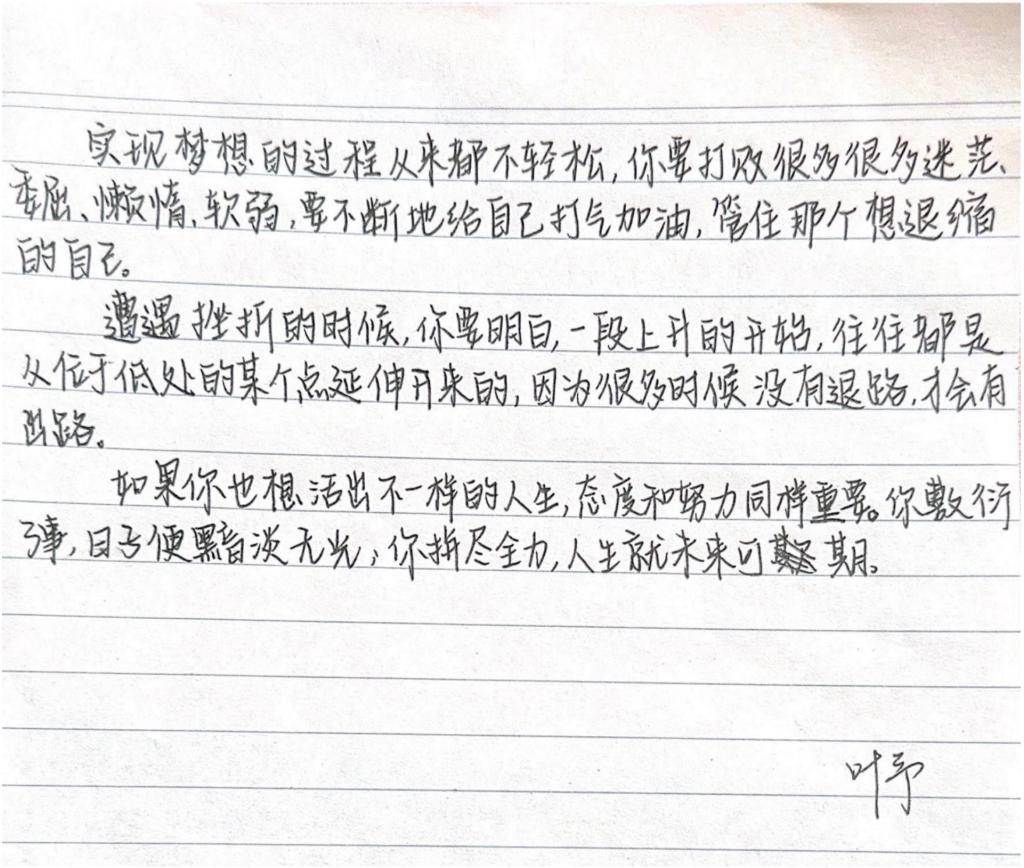 实现梦想的过程从来都不轻松,你要打败很多很多迷茫、
委屈、懒惰、软弱,要不断地给自己打气加油,管住那个想退缩
的自己。
遭遇挫折的时候,你要明白,一段上升的开始,往往都是
从位于低处的某个点延伸开来的,因为很多时候没有退路,才会有
出路。
如果你也想活出不一样的人生,态度和努力同样重要。你敷衍
了事,日子便黯淡无光;你拼尽全力,人生就未来可期。
叶予